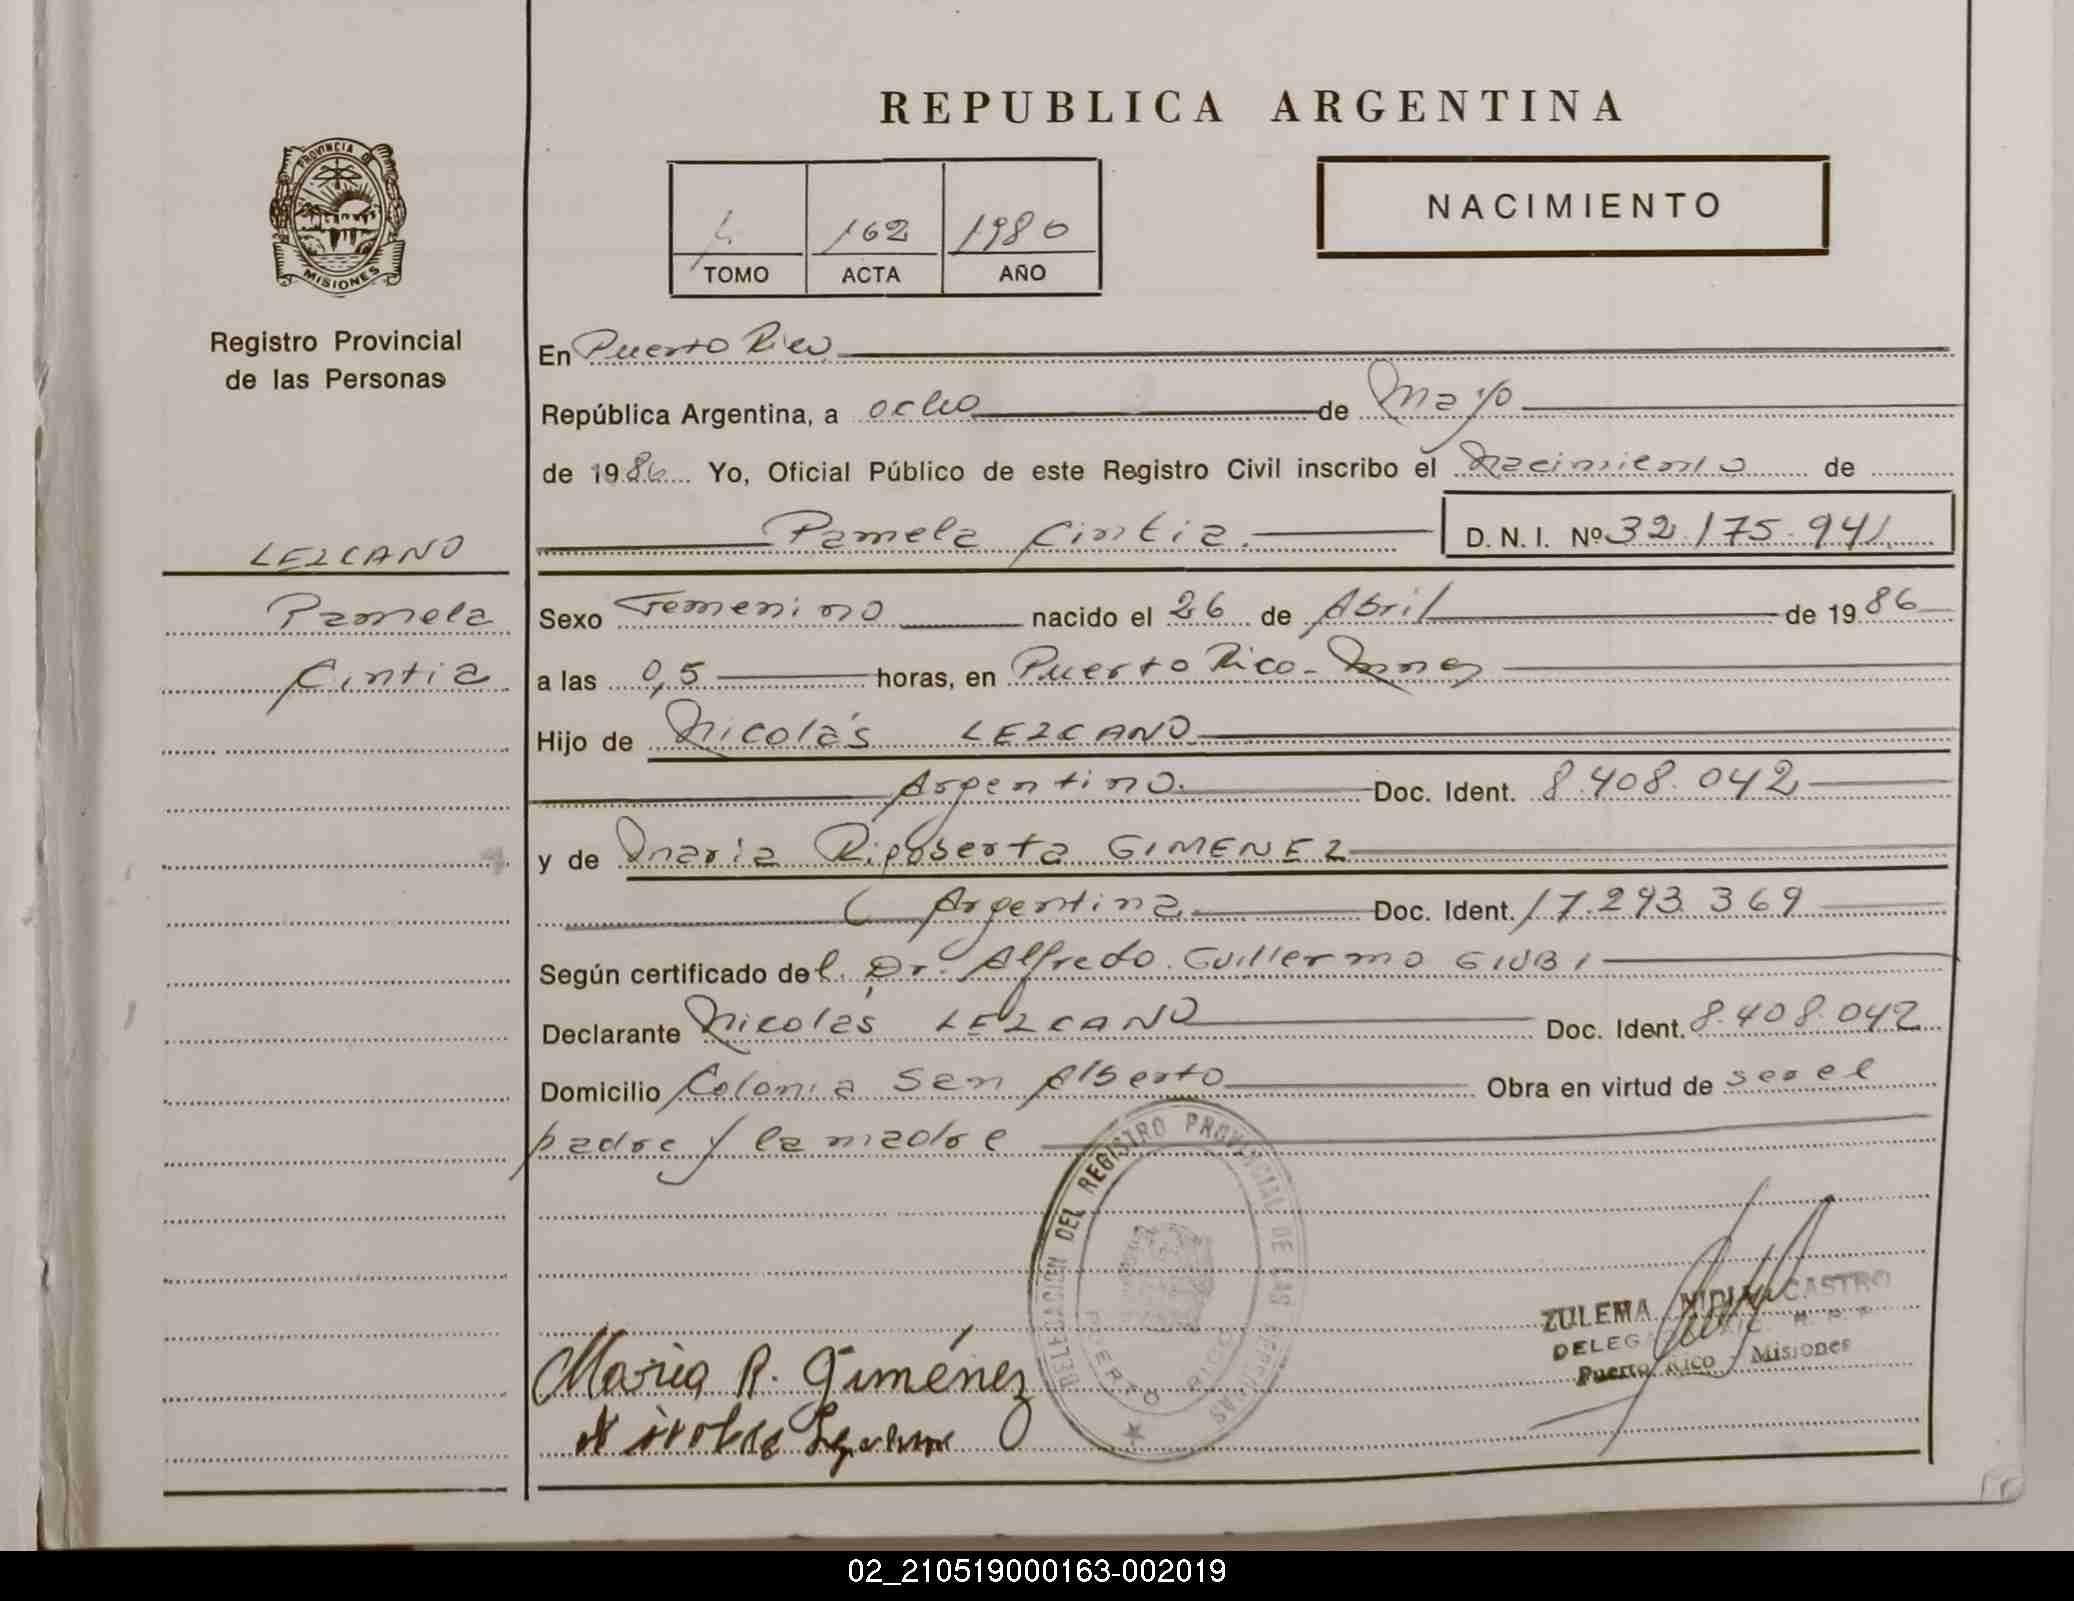 REPUBLICA ARGENTINA
PROVINCIA DE
MISIONES
Registro Provincial
de las Personas
162 1980
TOMO ACTA AÑO
NACIMIENTO
En Puerto Rico
República Argentina, a ocho de Mayo
de 1986 Yo, Oficial Público de este Registro Civil inscribo el Nacimiento de
Pamela Cintia. D. N. I. Nº 32.175.941
LEZCANO
Pamela
Cintia
Sexo Femenino nacido el 26 de Abril de 1986
a las 0,5 horas, en Puerto Rico - Mnes
Hijo de Nicolás LEZCANO
Argentino. Doc. Ident. 8.408.042
y de Maria Rigoberta GIMENEZ
Argentina Doc. Ident. 17.293.369
Según certificado del Dr. Alfredo Guillermo GIUBI
Declarante Nicolás LEZCANO Doc. Ident. 8.408.042
Domicilio Colonia San Alberto Obra en virtud de ser el
padre y la madre
DELEGACION DEL REGISTRO PROVINCIAL DE LAS PERSONAS
PUERTO RICO
ZULEMA CASTRO
Puerto Rico - Misiones
Maria R. Giménez
Nicolas Lezcano
02_210519000163-002019